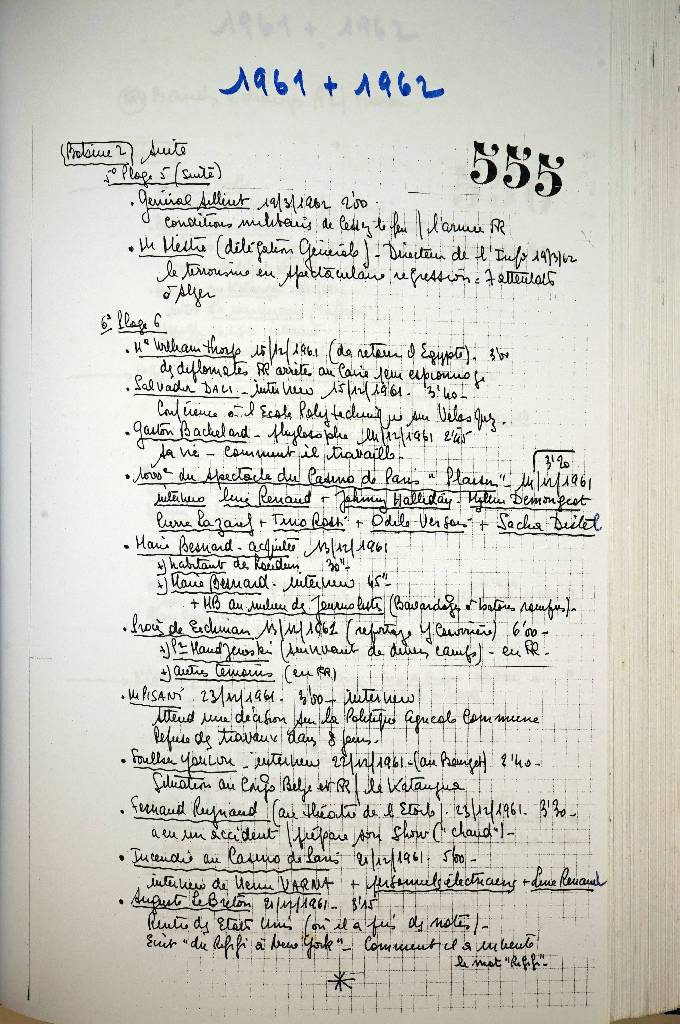 1961 + 1962
Bobine 2 suite
555
5° Plage 5 (suite)
• Général Ailleret 19/3/1962 2'00
conditions militaires de Cessez le feu / l'armée FR
• M Mestre (délégation Générale) - Directeur de l'Info 19/3/62
le terrorisme en spectaculaire regression = 7 attentats
à Alger
6° Plage 6
• Me William Thorp 15/12/1961 (de retour d'Egypte). 3'00
des diplomates FR arrêtés au Caire pour espionnage
• Salvador DALI - interview 15/12/1961 - 3'40 -
Conférence à l'Ecole Polytechnique sur Velasquez.
• Gaston Bachelard - Phylosophe 14/12/1961 2'45
sa vie - comment il travaille -
3'20
• du spectacle du Casino de Paris "Plaisir" - 14/12/1961
interview Line Renaud + Johnny Halliday - Mylène Demongeot
Pierre Lazareff + Tino Rossi + Odile Versois + Sacha Distel
• Marie Besnard - acquittée 13/12/1961
+) habitant de Loudun 30"-
+) Marie Besnard - interview 45"-
+ MB au milieu des Journalistes (Bavardages à batons rompus)-
• Procès de Eichman 13/12/1961 (reportage) 6'00 -
+) (survivant de divers camps) - en FR -
+) autres temoins (en FR)
• M PISANI 23/12/1961 - 3'00 - interview
Attend une décision sur la Politique Agricole Commune
Refuse des travaux dans 8 jours -
• Foulbert Youlou - interview 22/12/1961 - (au Bourget) 2'40 -
Situation au Congo Belge et FR / le Katangua
• Fernand Raynaud (au théatre de l'Etoile). 23/12/1961 - 3'30 -
a eu un accident / prépare son Show ("chaud") -
• Incendie au Casino de Paris 21/12/1961 - 5'00 -
interview de Henri VARNA + personnels électriciens + Line Renaud
• Auguste Le Breton 21/12/1961 - 3'15
Rentre des Etats Unis (où il a pris des notes) -
Ecrit "du Rififi à New York" - Comment il a inventé
le mot "Rififi" -